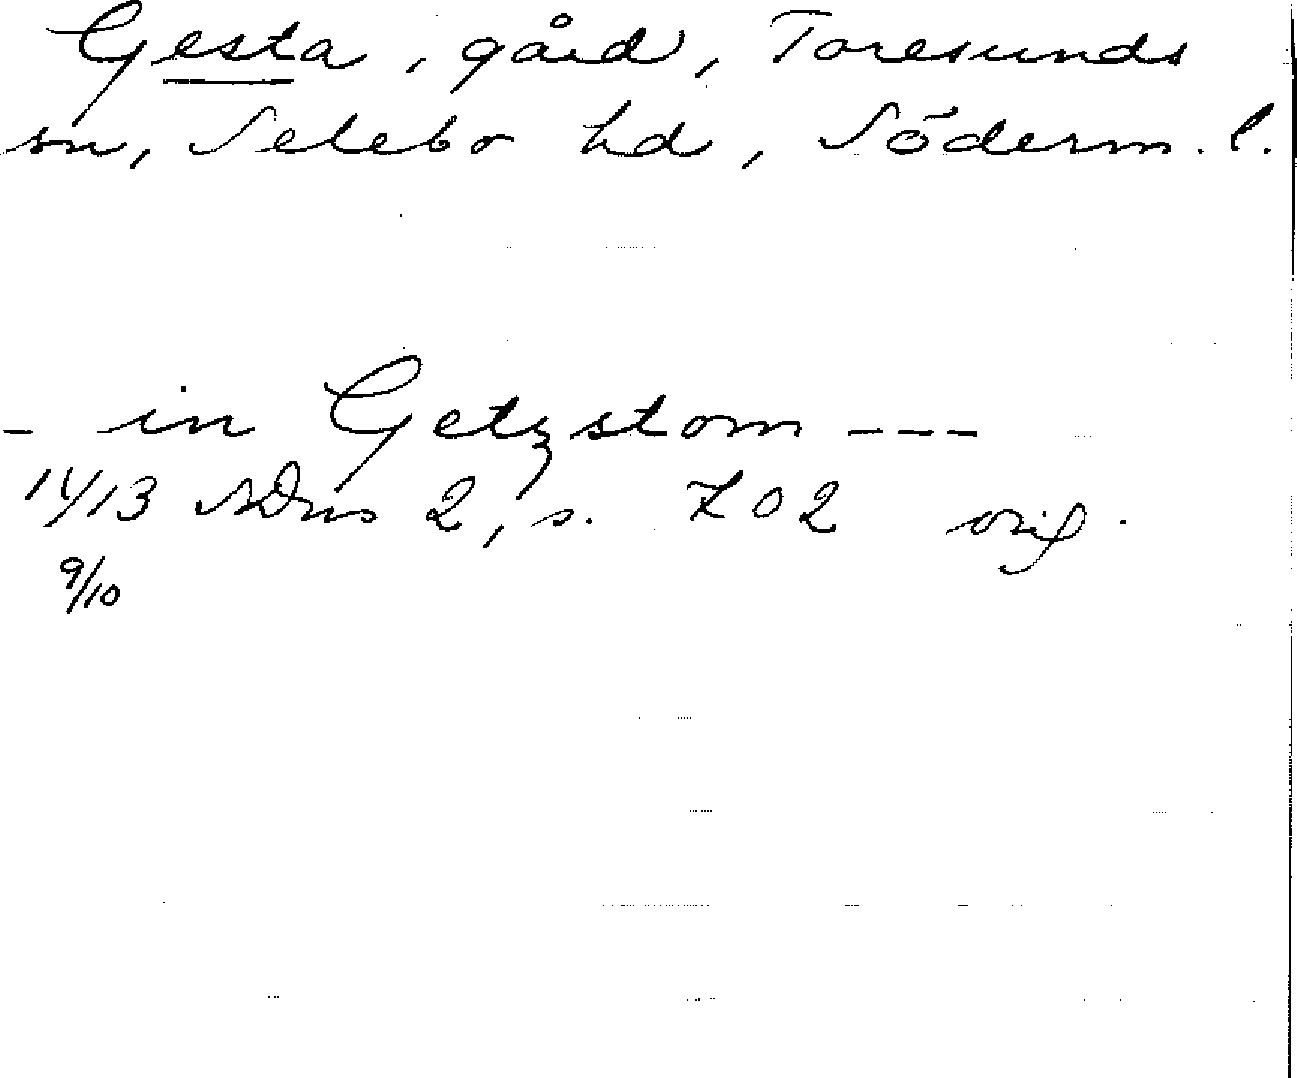 Gesta, gård, Toresunds
sn, Selebo hd, Söderm. l.
- in Getzstom ---
14/13 SDns 2, s. 702 orig.
9/10